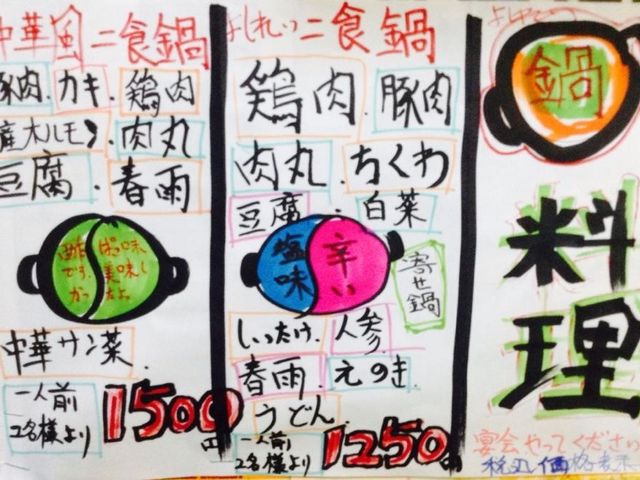 鍋
料
理
宴会、やってください
税込価格表示
よしれっ二食鍋
鶏肉.豚肉
肉丸.ちくわ
豆腐.白菜
塩味
辛い
寄せ鍋
しいたけ.人参.
春雨.えのき.
うどん
一人前
2名様より
1250円
中華風二食鍋
豚肉.カキ.鶏肉
産ホルモン.肉丸
豆腐.春雨
中華サン菜.
一人前
2名様より
1500円